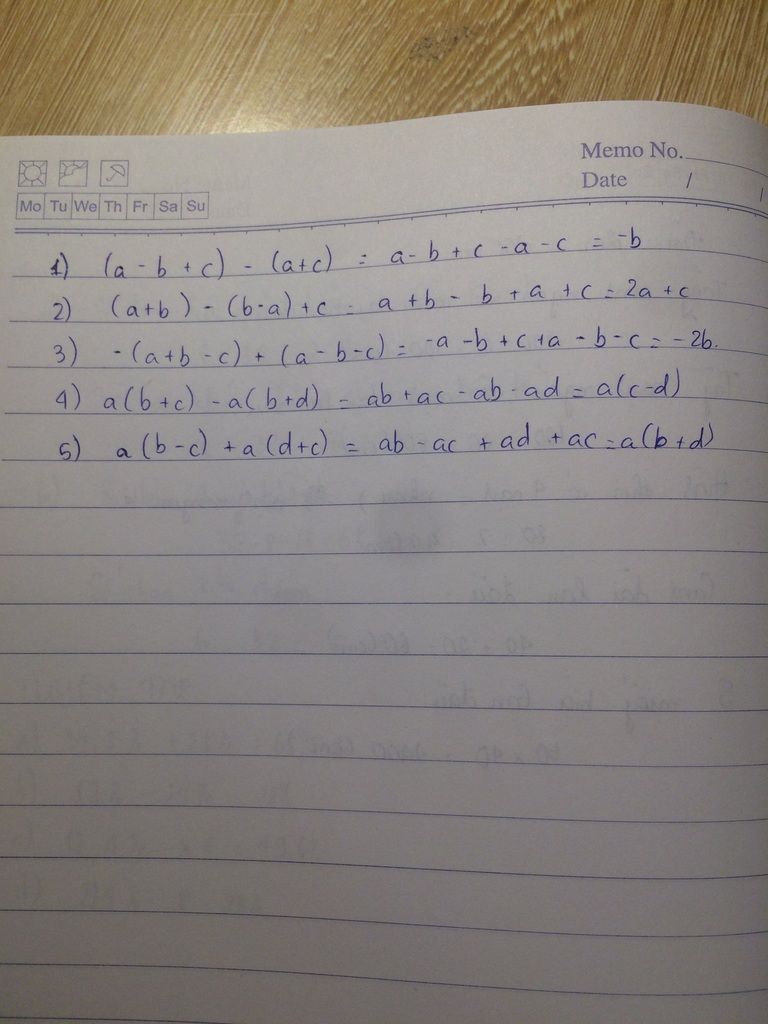 Memo No.
Date / /
Mo Tu We Th Fr Sa Su
1) (a - b + c) - (a+c) = a - b + c - a - c = -b
2) (a+b) - (b-a) + c = a + b - b + a + c = 2a + c
3) -(a+b-c) + (a-b-c) = -a - b + c + a - b - c = -2b.
4) a(b+c) - a(b+d) = ab + ac - ab - ad = a(c-d)
5) a(b-c) + a(d+c) = ab - ac + ad + ac = a(b+d)